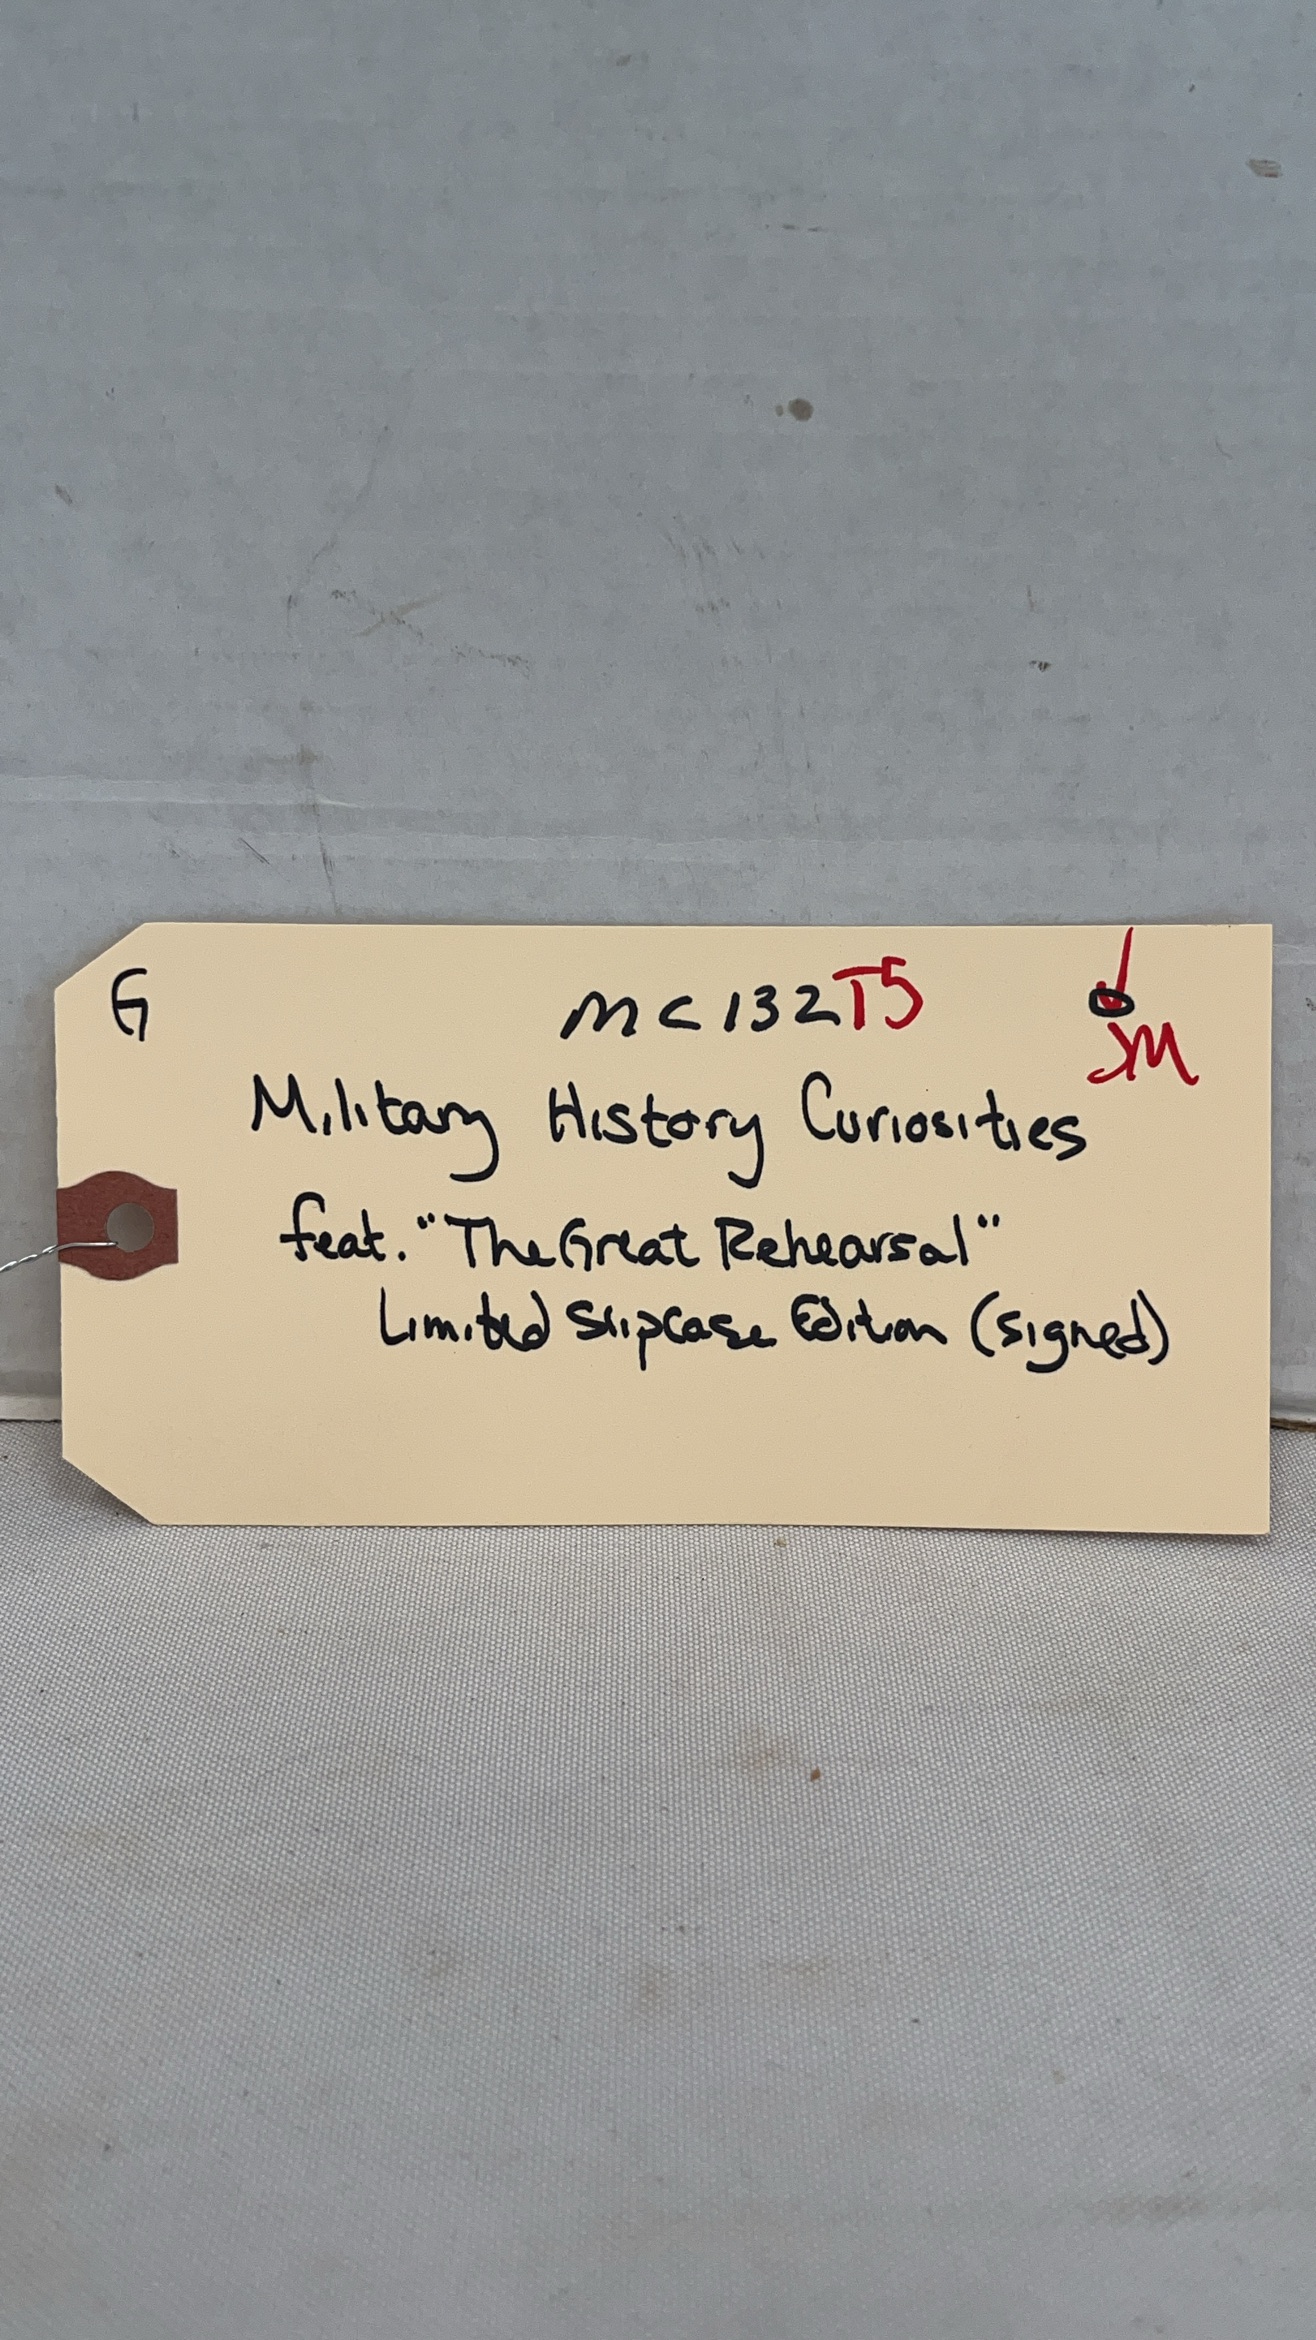 G MC132T5
JM
Military History Curiosities
feat. "The Great Rehearsal"
Limited Slipcase Edition (signed)